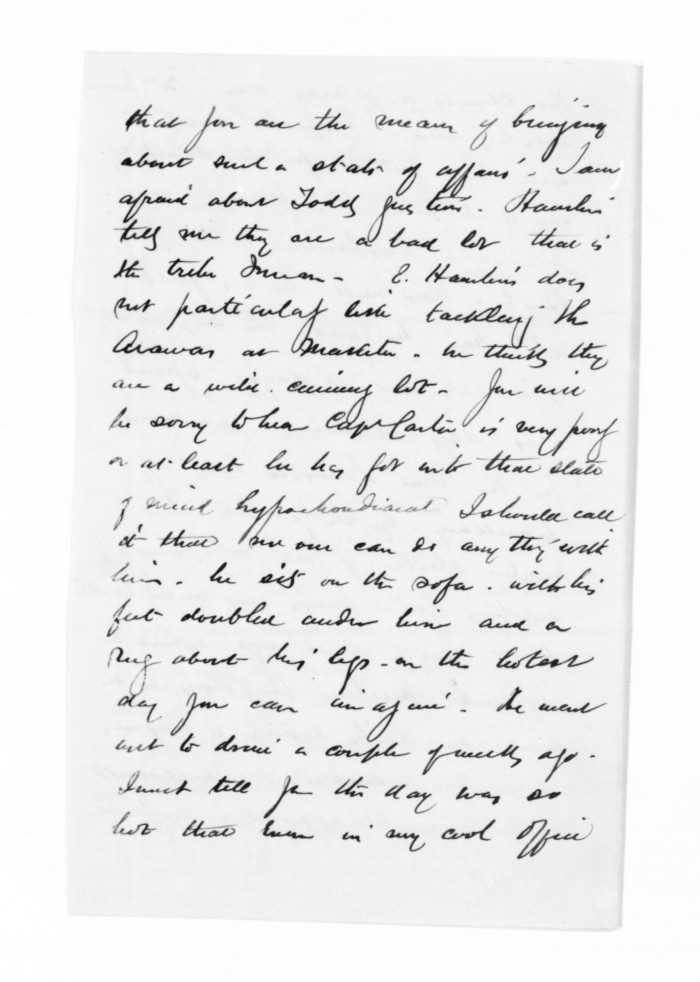 that you are the means of bringing
about such a state of affairs - I am
afraid about Todds question. Hamlin
tells me they are a bad lot that is
the tribe I mean - E. Hamlin does
not particularly like tackling the
Arawas at Maketu - he thinks they
are a wild cunning lot - You will
be sorry to hear Capt Carter is very poorly
or at least he has got into that state
of mind hypochondriacal I should call
it that no one can do any thing with
him - he sits on the sofa - with his
feet doubled under him and a
rug about his legs - on the hotest
day you can imagine - He went
out to drive a couple of weeks ago -
I must tell you the day was so
hot that even in my cool office